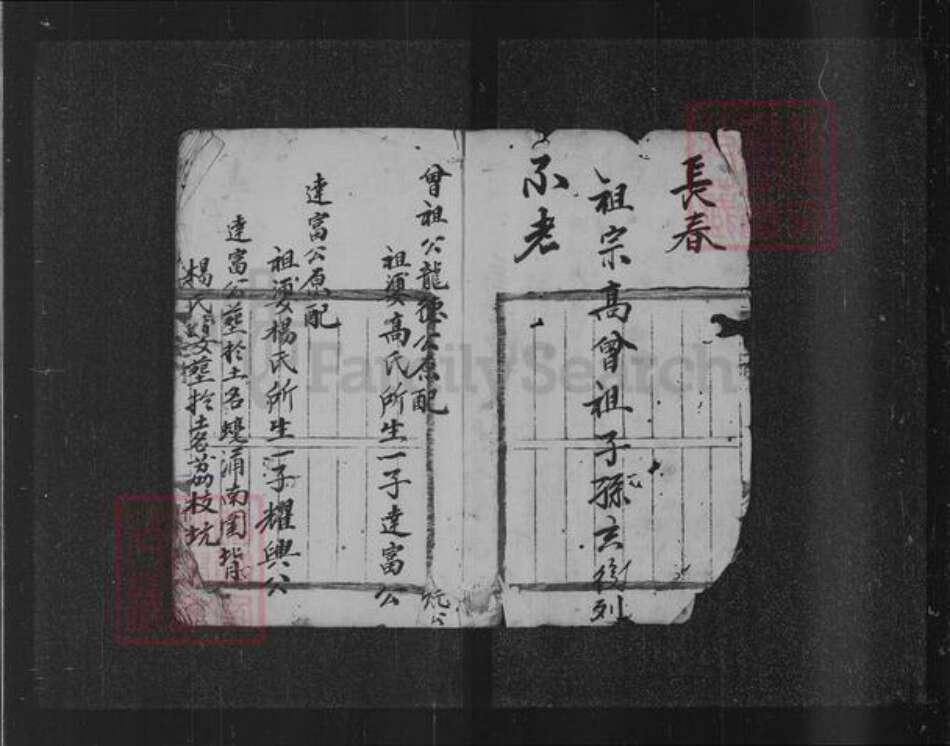 長春
祖宗高曾祖子孫玄衍列
不老
曾祖公龍德公原配
祖婆高氏所生一子達富公
達富公原配
祖婆楊氏所生一子耀興公
達富公塟於土名蠻浦南園背
楊氏婆塟於土名荔枝坑
FamilySearch